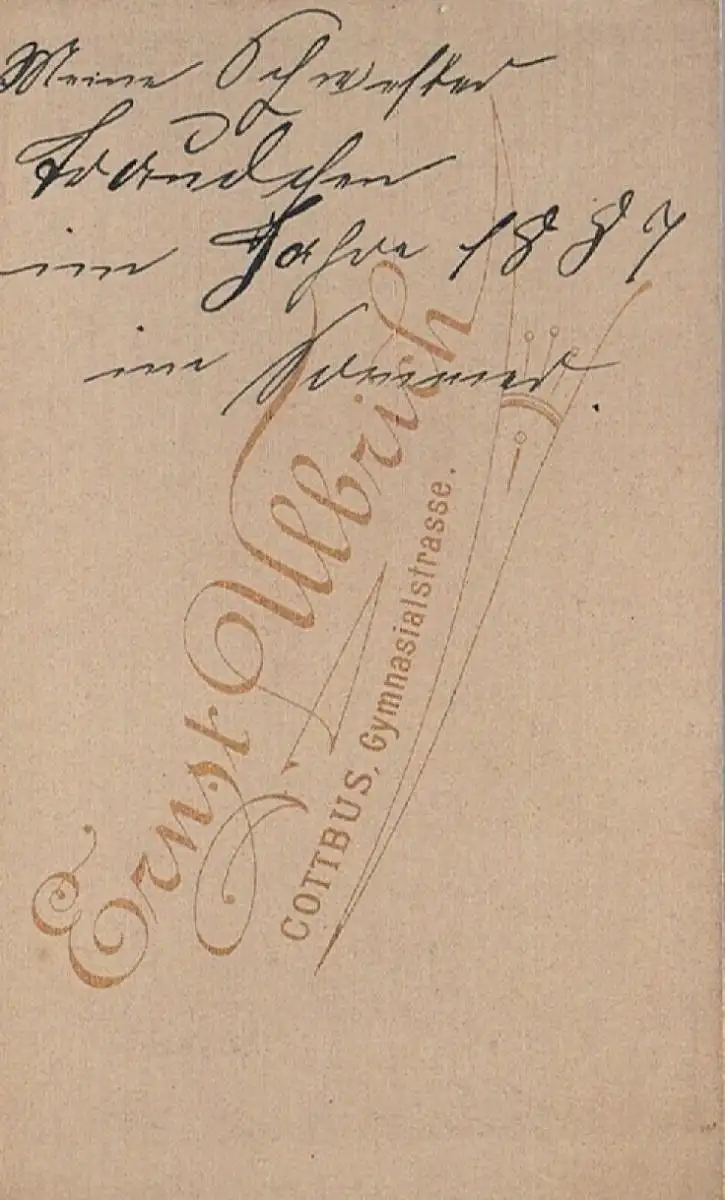 Meine Schwester
Traudchen
im Jahre 1887
im Sommer.
Ernst Ulbrich
COTTBUS, Gymnasialstrasse.